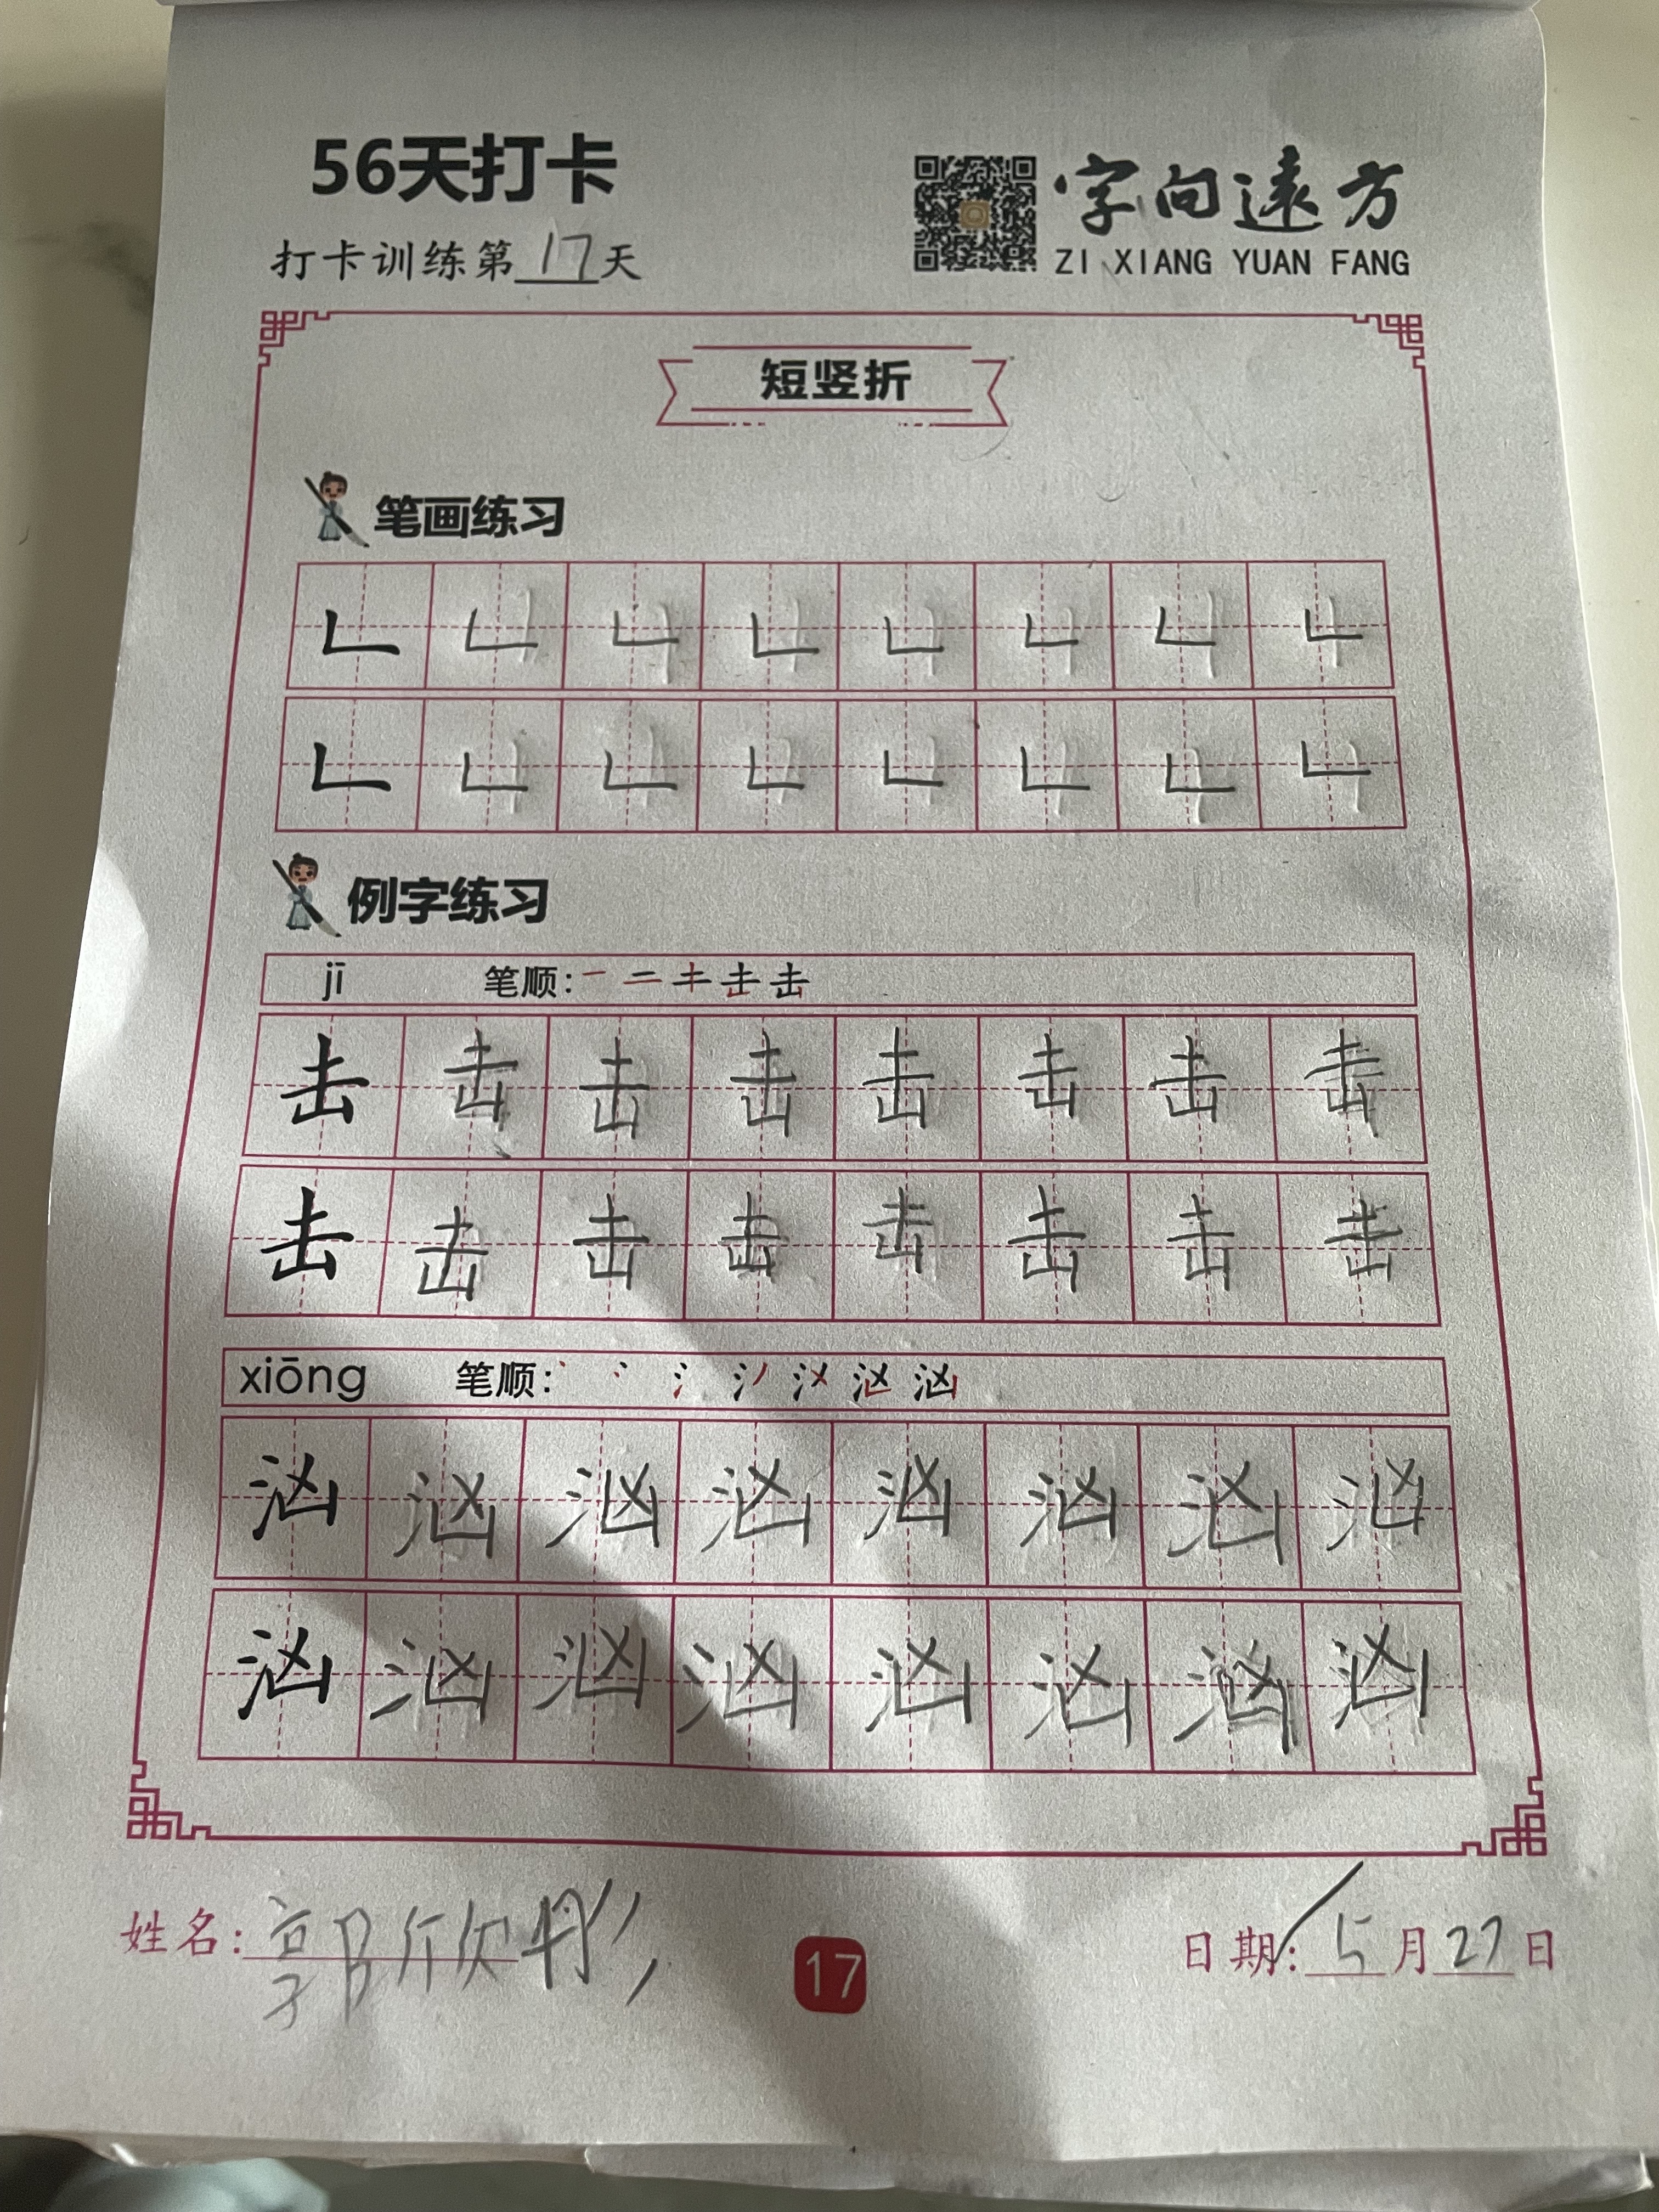 56天打卡
打卡训练第17天
字向遠方
ZI XIANG YUAN FANG
短竖折
笔画练习
𠃊 𠃊 𠃊 𠃊 𠃊 𠃊 𠃊 𠃊
𠃊 𠃊 𠃊 𠃊 𠃊 𠃊 𠃊 𠃊
例字练习
jī 笔顺:
击 击 击 击 击 击 击 击
击 击 击 击 击 击 击 击
xiōng 笔顺:
汹 汹 汹 汹 汹 汹 汹 汹
汹 汹 汹 汹 汹 汹 汹 汹
姓名:郭欣彤
17
日期:5月27日